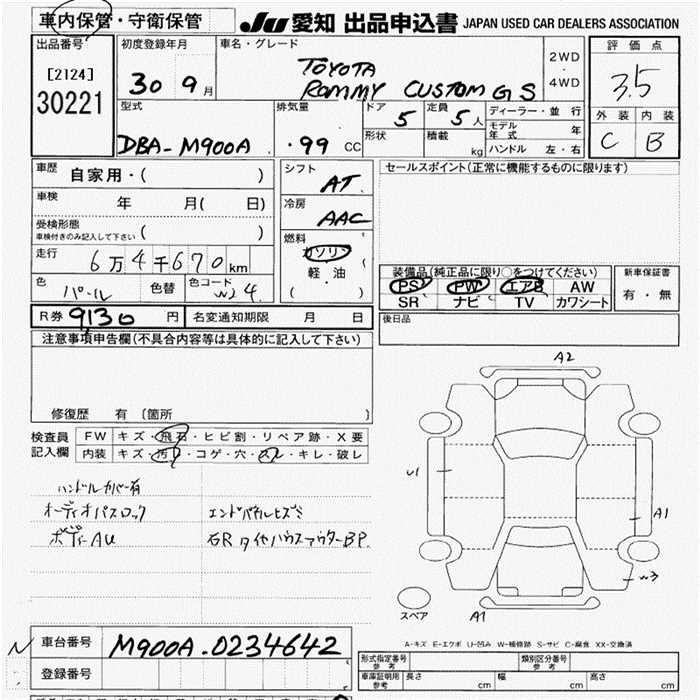 車内保管・守衛保管
JU 愛知 出品申込書 JAPAN USED CAR DEALERS ASSOCIATION
出品番号 初度登録年月 車名・グレード 評価点
[2124] 30 9月 TOYOTA 2WD・4WD 3.5
30221 ROMMY CUSTOM G S
型式 排気量 ドア 定員 ディーラー・並行 外装 内装
DBA-M900A .99 CC 5 5人 モデル年式 年 C B
形状 積載 kg ハンドル 左・右
車歴 自家用・( ) シフト AT セールスポイント(正常に機能するものに限ります)
車検 年 月( 日) 冷房 AAC
受検形態 ( )
車検付きのみ記入して下さい
燃料 ガソリン
走行 6万4千670km 軽油
( )
装備品(純正品に限り○をつけてください) 新車保証書
色 パール 色替 色コード W24 PS PW エアB AW 有・無
SR ナビ TV カワシート
R券 9130円 名変通知期限 月 日 後日品
注意事項申告欄(不具合内容等は具体的に記入して下さい)
修復歴 有 〔箇所 〕
検査員記入欄 FW キズ・飛石・ヒビ割・リペア跡・X要
内装 キズ・汚れ・コゲ・穴・スレ・キレ・破レ
ハンドルカバー有
オーディオパスロック エンドパネルヒズミ
ボディーAU
A2
U1
A1
W3
A1
スペア
A-キズ E-エクボ U-凹み W-補修跡 S-サビ C-腐食 XX-交換済
車台番号 M900A-0234642
登録番号
形式指定番号 参考 類別区分番号 参考
車庫証明用 参考 長さ cm 幅 cm 高さ cm